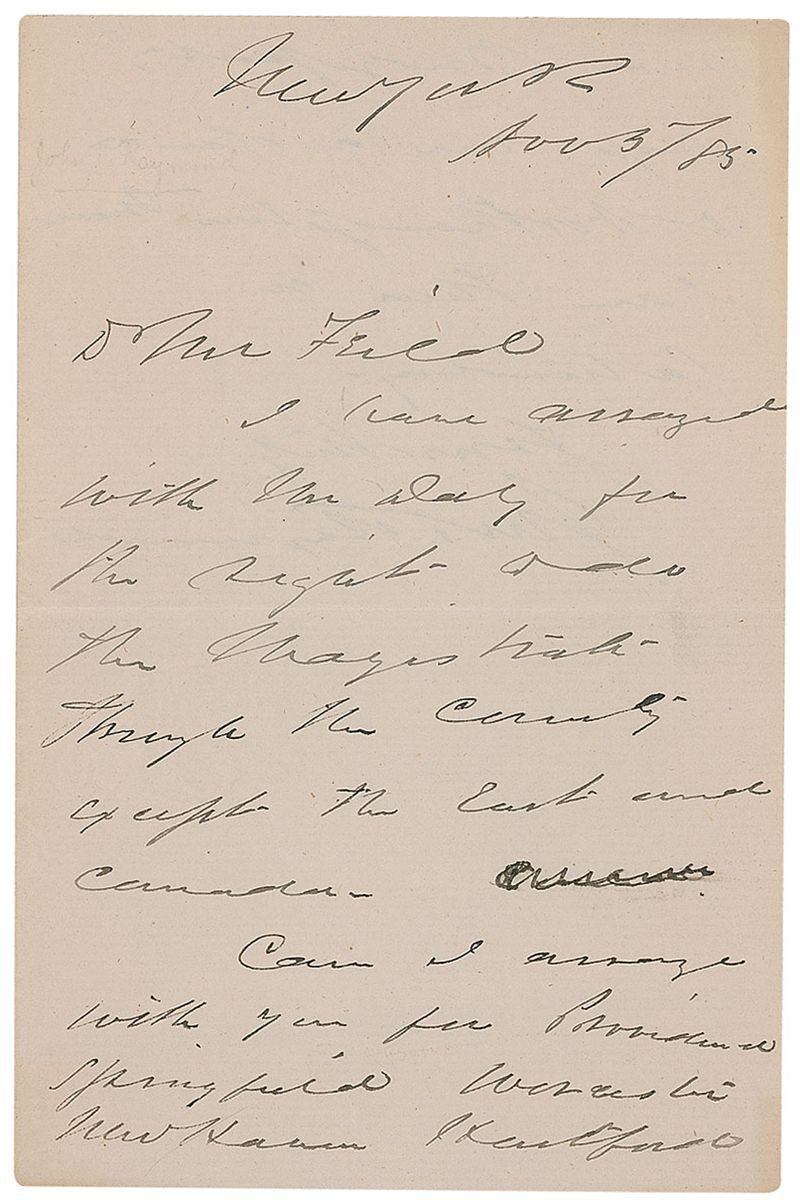 New York
Nov 5/85
D Mr Field
I have arranged
with Mr Daly for
the right to do
the Magistrate
through the County
except the East and
Canada
Can I arrange
with you for Providence
Springfield Worcester
New Haven Hartford